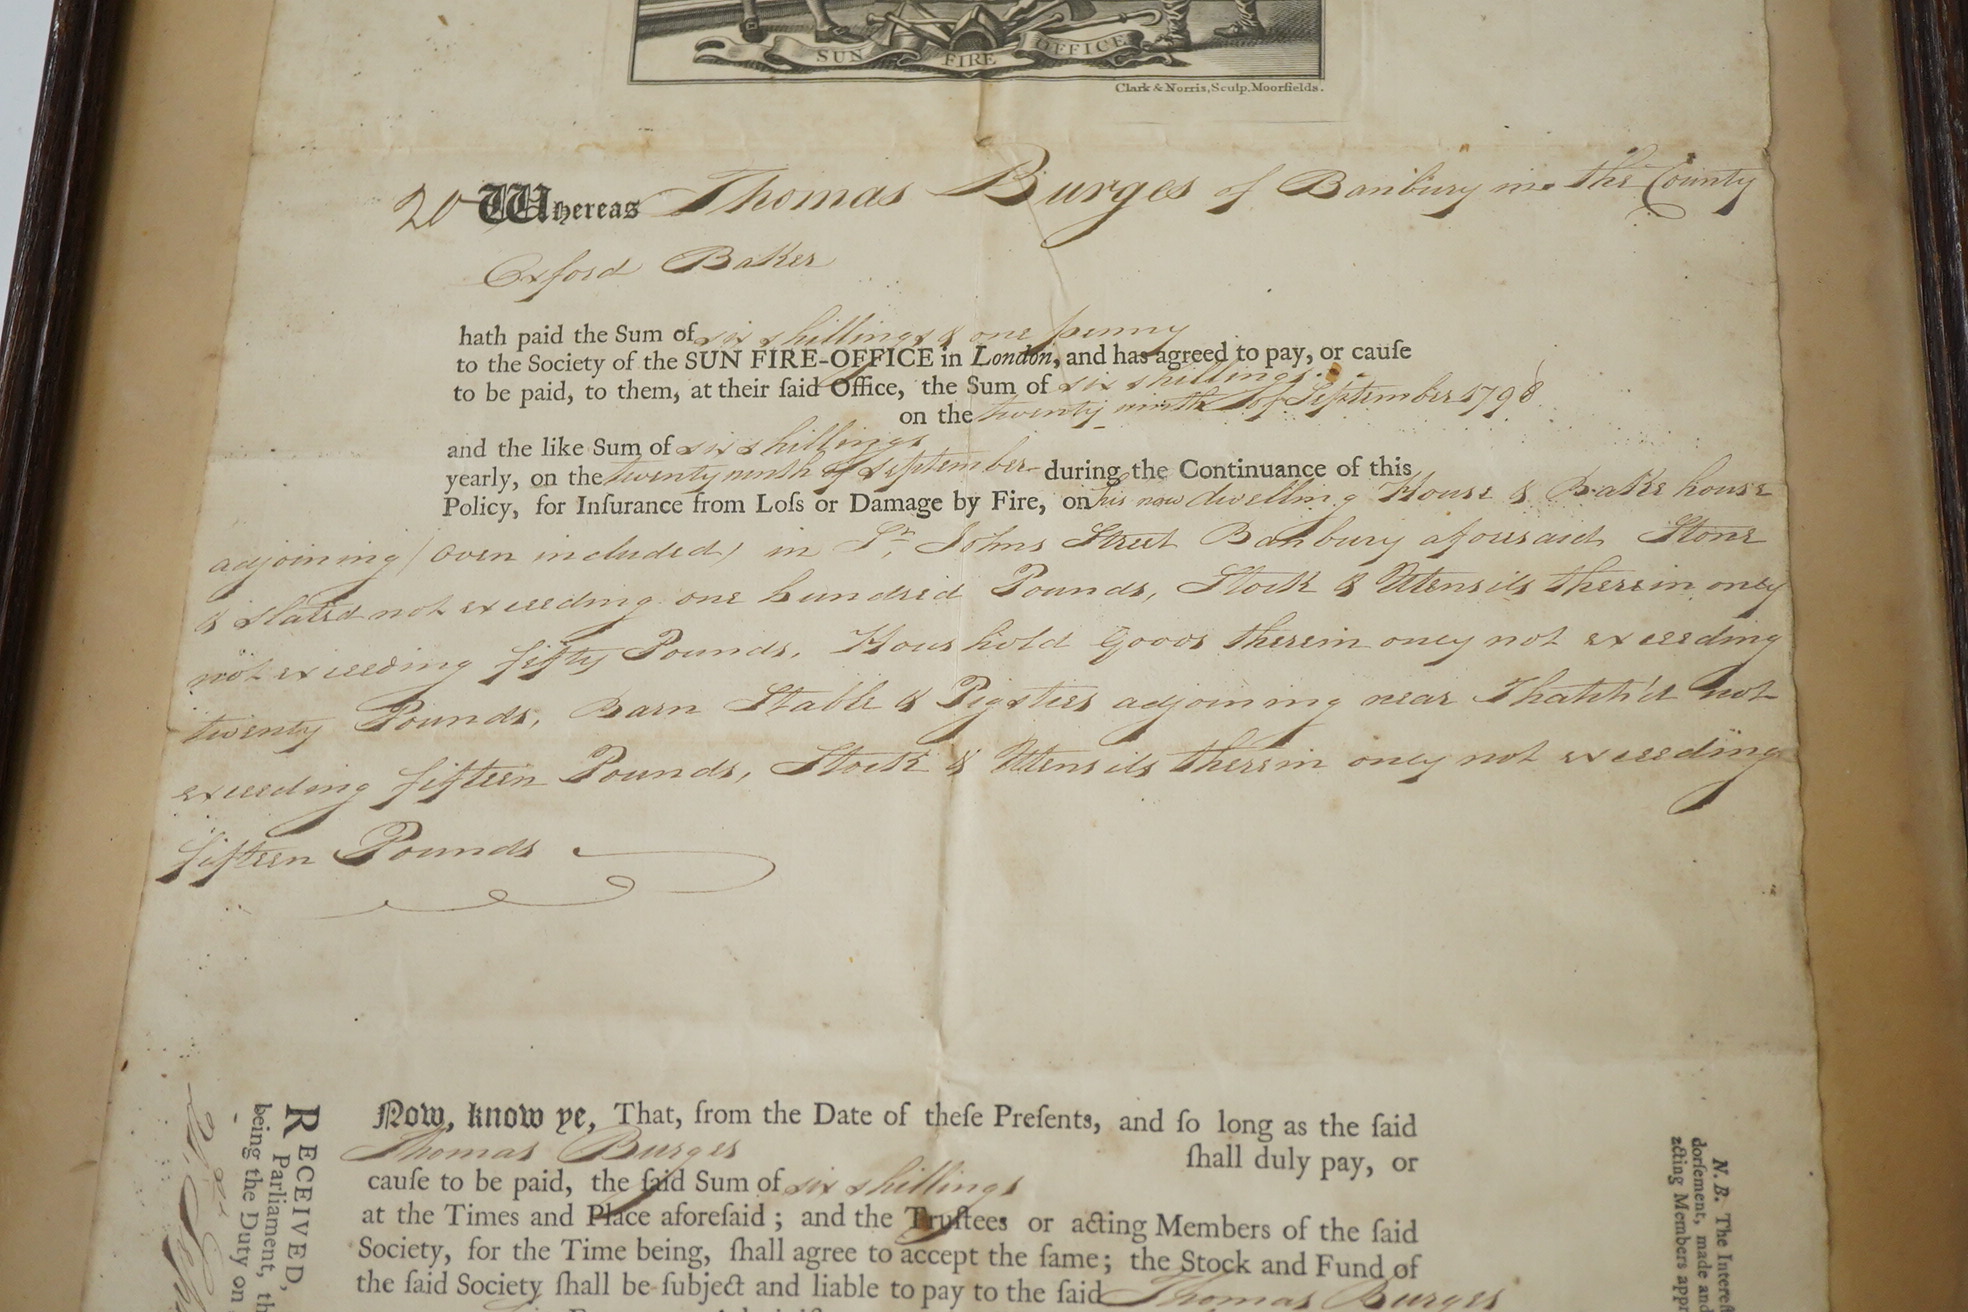 SUN FIRE OFFICE
Clark & Norris, Sculp. Moorfields.
20 Whereas Thomas Burges of Banbury in the County
Oxford Baker
hath paid the Sum of six shillings & one penny
to the Society of the SUN FIRE-OFFICE in London, and has agreed to pay, or cauſe
to be paid, to them, at their ſaid Office, the Sum of six shillings
on the twenty ninth of September 1798
and the like Sum of six shillings
yearly, on the twenty ninth of September during the Continuance of this
Policy, for Inſurance from Loſs or Damage by Fire, on his now dwelling House & Bakehouse
adjoining (Oven included) in St. Johns Street Banbury aforesaid Stone
& Slated not exceeding one hundred Pounds, Stock & Utensils therein only
not exceeding fifty Pounds, Houshold Goods therein only not exceeding
twenty Pounds, Barn Stable & Pigsties adjoining near Thatch'd not
exceeding fifteen Pounds, Stock & Utensils therein only not exceeding
fifteen Pounds
Now, know ye, That, from the Date of theſe Preſents, and ſo long as the ſaid
Thomas Burges ſhall duly pay, or
cauſe to be paid, the ſaid Sum of six shillings
at the Times and Place aforeſaid; and the Truſtees or acting Members of the ſaid
Society, for the Time being, ſhall agree to accept the ſame; the Stock and Fund of
the ſaid Society ſhall be ſubject and liable to pay to the ſaid Thomas Burges
RECEIVED,
Parliament, th
being the Duty on
N. B. The Intereſ
dorſement, made and
acting Members appr